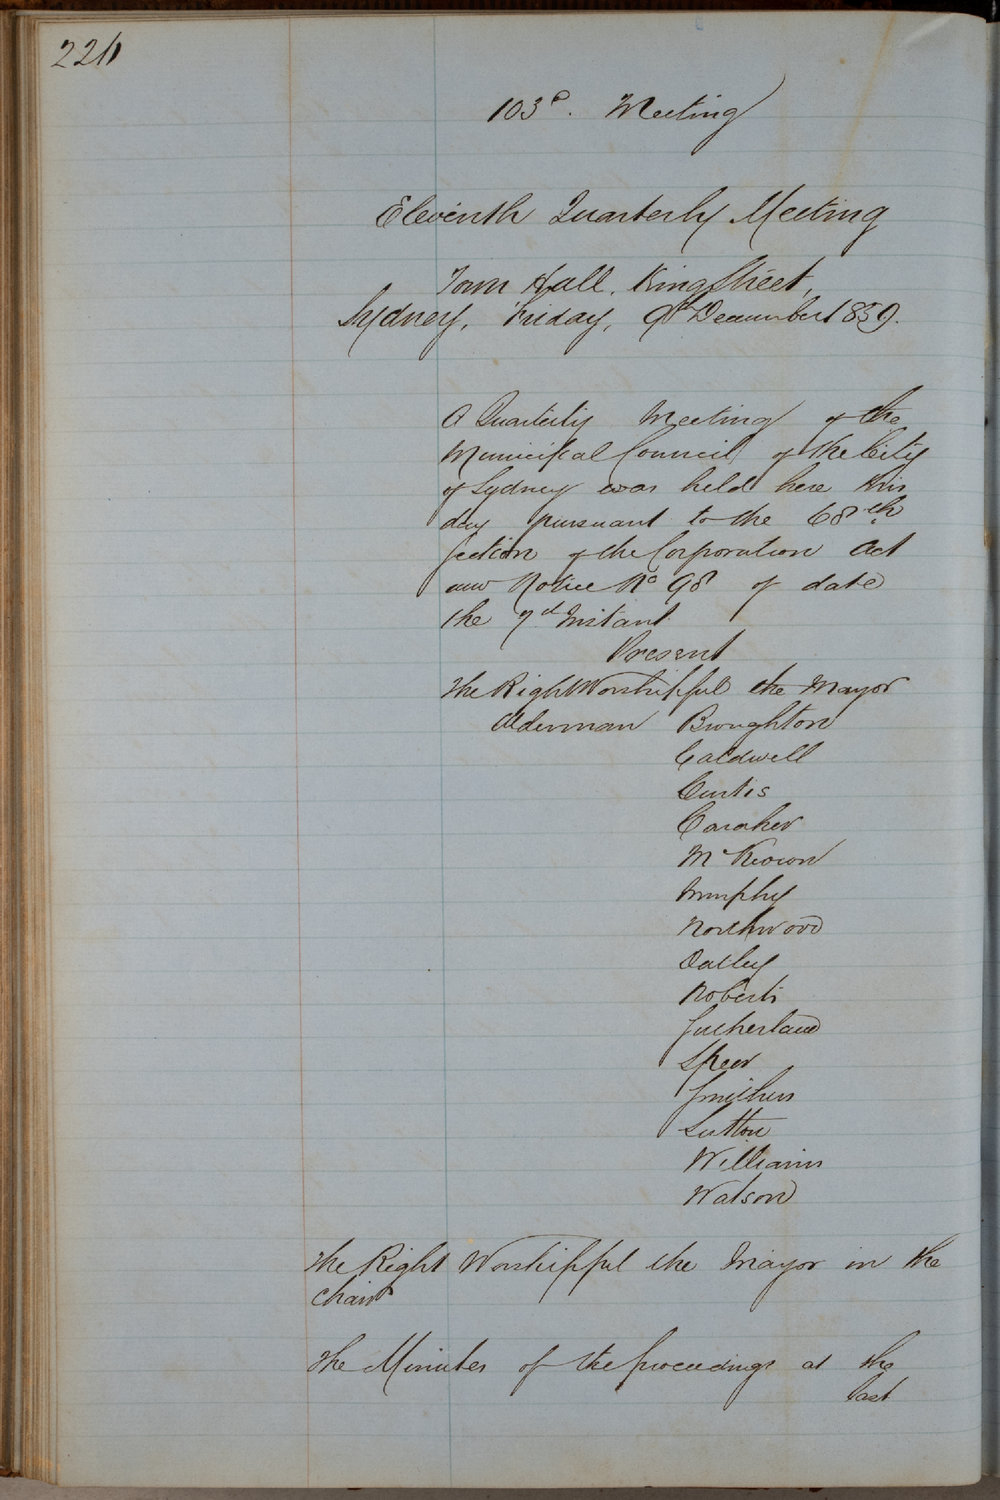 103d. Meeting
Eleventh Quarterly Meeting
Town Hall, King Street,
Sydney, Friday, 9th December 1859.
A Quarterly Meeting of the
Municipal Council of the City
of Sydney was held here this
day pursuant to the 68th
Section of the Corporation Act
and Notice No 98 of date
the 7d Instant.
Present
The Right Worshipful the Mayor
Alderman Broughton
Caldwell
Curtis
Caraher
McKeown
Murphy
Northwood
Oatley
Roberts
Sutherland
Speer
Smithers
Sutton
Williams
Watson
The Right Worshipful the Mayor in the
Chair
The Minutes of the proceedings at the
last